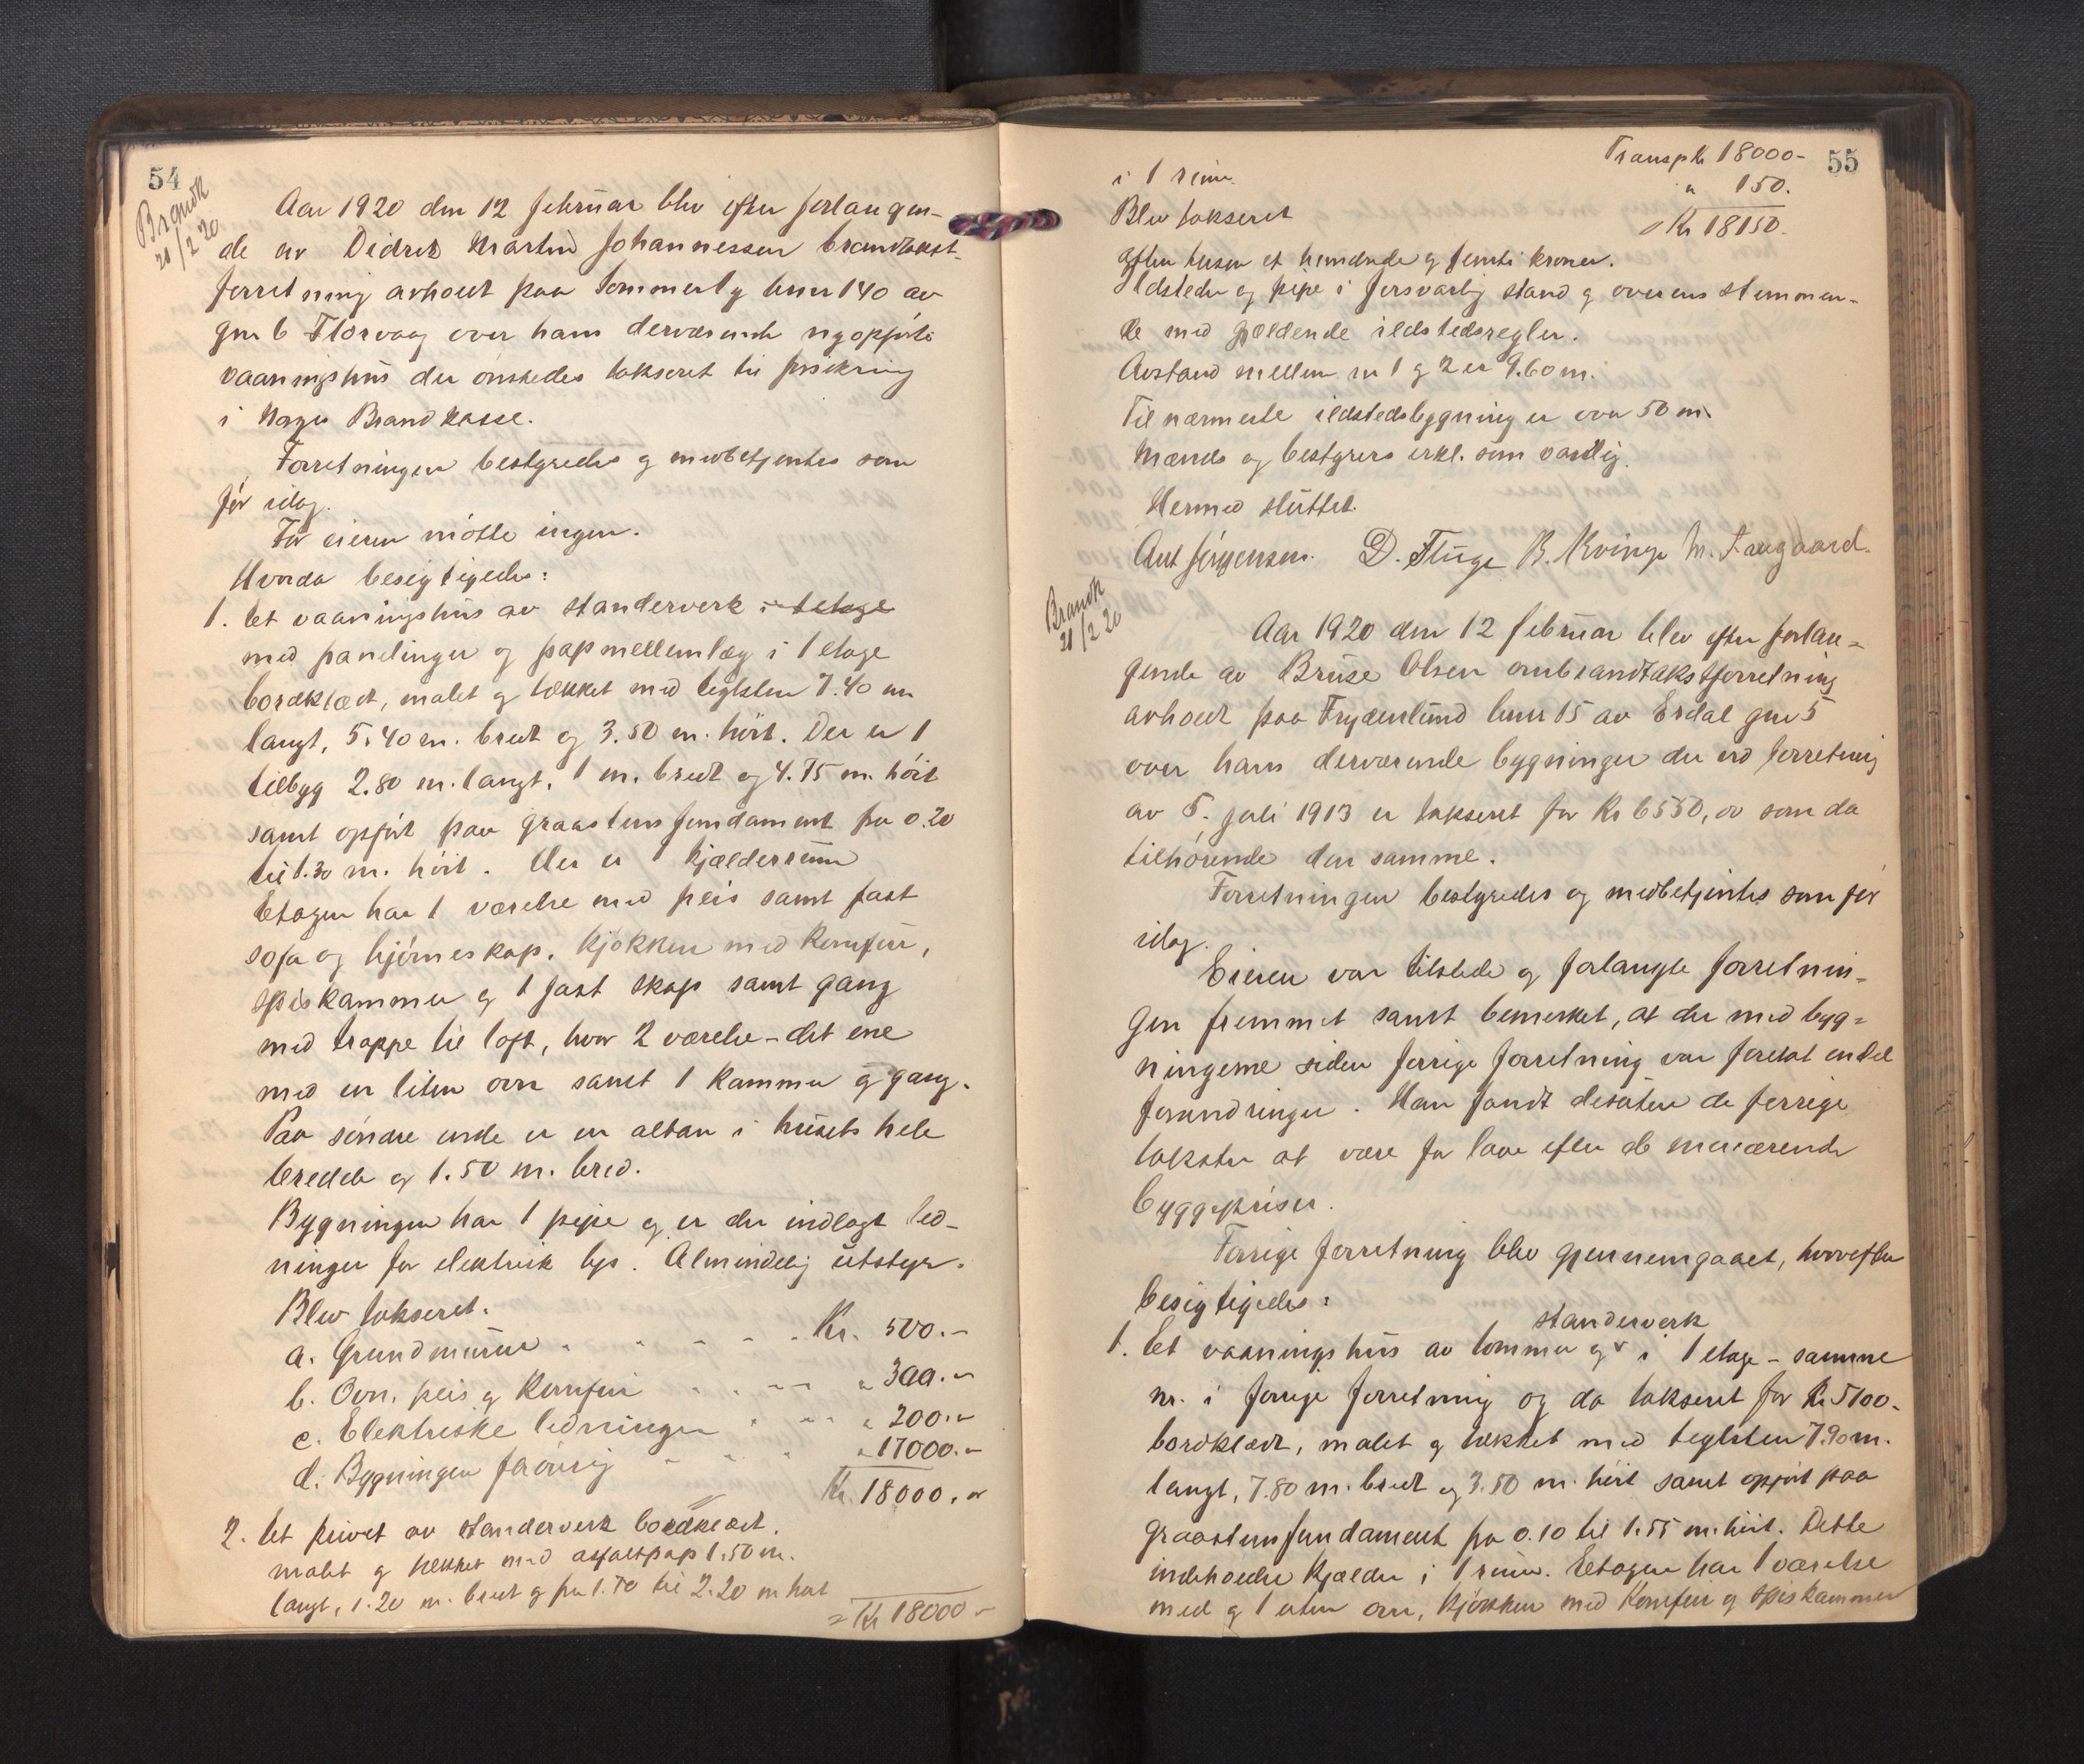 54
Brandk
21/2 20
Aar 1920 den 12 februar blev efter forlangen-
de av Didrik Martin Johannessen brandtakst-
forretning avholdt paa Sommerly bnr 140 av
gnr 6 Florvaag over hans derværende nyopførte
vaaningshus der ønskedes takseret til forsikring
i Norges Brandkasse.
Forretningen bestyredes og medbetjentes som
før idag.
For eieren møtte ingen.
Hvorda besigtigedes:
1. Et vaaningshus av standerverk i 1 etage
med panelinger og papmellemlæg i 1 etage
bordklædt, malet og tækket med teglsten 7.40 m
langt, 5.40 m. bredt og 3.50 m. høit. Der er 1
tilbyg 2.80 m. langt, 1 m. bredt og 4.75 m. høit
samt opført paa graastensfundament fra 0.20
til 1.30 m. høit. Her er 1 kjælderrum
Etagen har 1 værelse med peis samt fast
sofa og hjørneskap, kjøkken med komfur,
spiskammer og 1 fast skap samt gang
med trappe til loft, hvor 2 værelse - det ene
med en liten ovn samt 1 kammer og gang.
Paa søndre ende er en altan i husets hele
bredde og 1.50 m. bred.
Bygningen har 1 pipe og er der indlagt led-
ninger for elektrisk lys. Almindelig utstyr.
Blev takseret:
a. Grundmurene " - - - Kr. 500.-
b. Ovn, peis og komfur - - - " 300.-
c. Elektriske ledninger " - - " 200.-
d. Bygningen forøvrig - - - " 17000.-
Kr. 18000,-
2. Et privet av standerverk bordklædt,
malet og tækket med asfaltpap 1.50 m.
langt, 1.20 m. bredt og fra 1.70 til 2.20 m høit
= Kr 18000 -
55
Transp Kr 18000-
i 1 rum.
" 150.
Blev takseret
Kr 18150.
atten tusen et hundrede og femti kroner.
Ildsteder og pipe i forsvarlig stand og overensstemmen-
de med gjældende ildstedsregler.
Avstand mellem nr 1 og 2 er 9.60 m.
Til nærmeste ildstedsbygning er over 50 m.
Mænds og bestyrers erkl. som vanlig.
Hermed sluttet.
Ant Jørgensen. D. Fluge B. Kvinge M.
Brandk
21/2 20
Aar 1920 den 12 februar blev efter forlan-
gende av Bruse Olsen ombrandtakstforretning
avholdt paa Frydenlund bnr 15 av Erdal gnr 5
over hans derværende bygninger der ved forretning
av 5. juli 1913 er takseret for Kr 6550,00 som da
tilhørende den samme.
Forretningen bestyredes og medbetjentes som før
idag.
Eieren var tilstede og forlangte forretnin-
gen fremmet samt bemerket, at der med byg-
ningerne siden forrige forretning var foretat endel
forandringer. Han fandt desuten de forrige
takster at være for lave efter de nuværende
byggepriser.
Forrige forretning blev gjennemgaaet, hvorefter
besigtigedes:
standerverk
1. Et vaaningshus av tømmer og v i 1 etage - samme
nr. i forrige forretning og da takseret for Kr 5100-
bordklædt, malet og tækket med teglsten 7.90 m.
langt, 7.80 m. bredt og 3.50 m. høit samt opført paa
graastensfundament fra 0.10 til 1.55 m. høit. Dette
indeholder kjælder i 1 rum. Etagen har 1 værelse
med og 1 uten ovn, kjøkken med komfur og spiskammer